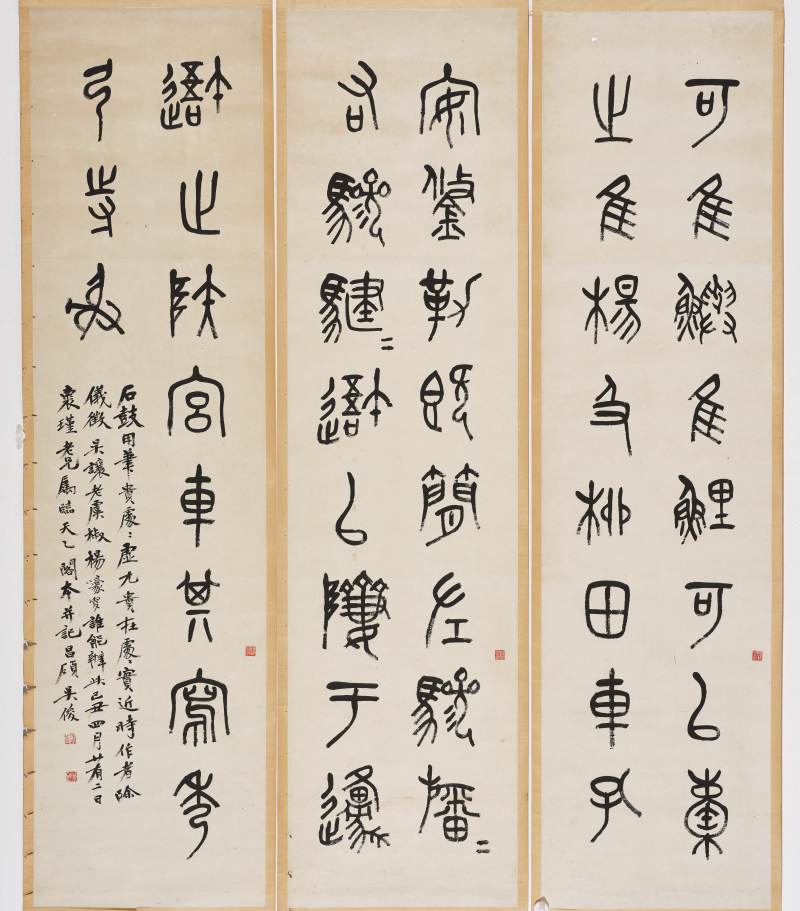 可隹鱮隹鯉可㠯橐
之隹楊及柳田車孔
安鋚勒既簡左驂旛=
右驂騝=㠯隮于邍
止陝宮車其寫秀
弓寺射
石鼓用筆貴處〻虛尤貴在處〻實近時作者除
儀徵吳讓老虞椒楊濠叟誰能辨此己丑四月廿有二日
褱瑾老兄屬臨天乙閣本并記昌碩吳俊